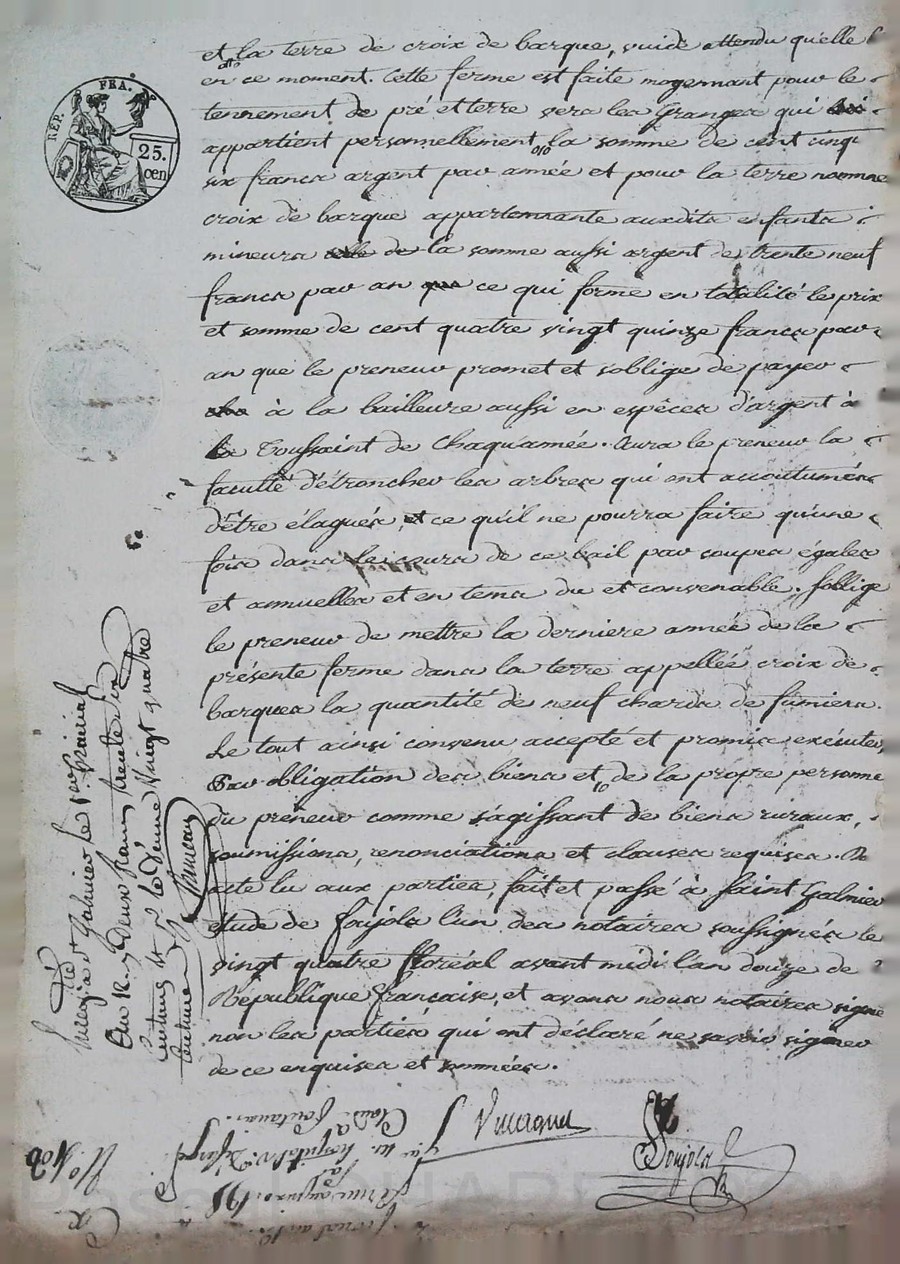 RÉP. FRA.
25.
cen
et la terre de croix de barque, vuide attendu qu'elle
en ce moment. Cette ferme est faite moyennant pour le
tennement de pré et terre vers les Granges qui
appartient personnellement la somme de cent cinqt
six francs argent par année et pour la terre nommé
croix de barque appartennante auxdits enfants
mineurs de la somme aussi argent de trente neuf
francs par an ce qui forme en totalité le prix
et somme de cent quatre vingt quinze francs par
an que le preneur promet et soblige de payer
à la bailleure aussi en espèces d'argent à
la Toussaint de chaqu'année. Aura le preneur la
faculté d'étroncher les arbres qui ont accoutumés
d'être élagués, et ce qu'il ne pourra faire qu'une
fois dans le cours de ce bail par coupes égales
et annuelles et en tems du et convenable. soblige
le preneur de mettre la derniere année de la
présente ferme dans la terre appellée croix de
barques la quantité de neuf chards de fumiers.
Le tout ainsi convenu accepté et promis exécuter
Par obligation des biens et de la propre personne
du preneur comme s'agissant de biens ruraux,
soumissions, renonciations et clauses requises.
acte lu aux parties, fait et passé à Saint Galmier
étude de Soujols l'un des notaires soussignés le
vingt quatre floréal avant midi l'an douze de
République française, et avons nous notaires signé
non les parties qui ont déclaré ne savoir signer
de ce enquises et sommées.
Vincquel
Soujols
à St Galmier le 1er prairial
an 12
N° 108